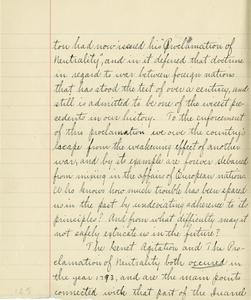 ton had now issued his "Proclamation of
Neutrality", and in it defined that doctrine
in regard to war between foreign nations
that has stood the test of over a century, and
still is admitted to be one of the wisest pre-
cedents in our history. To the enforcement
of this proclamation we owe the country's
escape from the weakening effect of another
war, and by its example are forever debarred
from mixing in the affairs of European nations.
Who knows how much trouble has been spared
us in the past by undeviating adherence to its
principles? And from what difficulty may it
not safely extricate us in the future?
The Genet Agitation and The Pro-
clamation of Neutrality both occured in
the year 1793, and are the main points
connected with that part of the